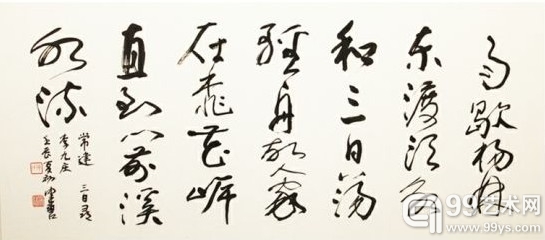 雨歇杨林
东渡头永
和三日荡
轻舟故人家
在桃花岸
直到门前溪
水流
常建 三日寻
李九庄
壬辰夏初
99艺术网
www.99ys.com